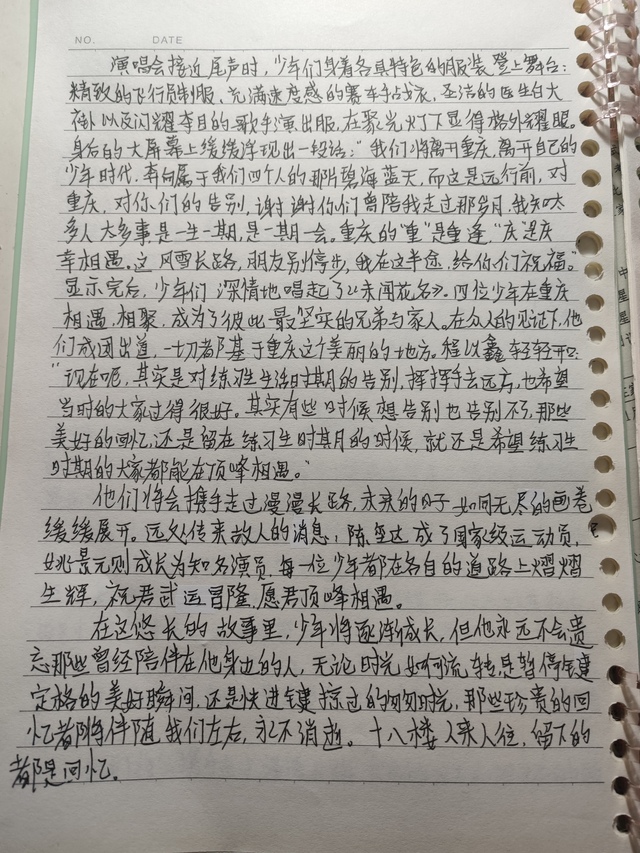 NO. DATE
演唱会接近尾声时，少年们身着各具特色的服装登上舞台：
精致的飞行员制服、充满速度感的赛车手战衣、圣洁的医生白大
褂以及闪耀夺目的歌手演出服，在聚光灯下显得格外耀眼。
身后的大屏幕上缓缓浮现出一段话：“我们将离开重庆，离开自己的
少年时代，奔向属于我们四个人的那片碧海蓝天，而这是远行前，对
重庆，对你们的告别，谢谢你们曾陪我走过那岁月，我知太
多人太多事是一生一期，是一期一会。重庆的“重”是重逢，“庆”是庆
幸相遇。这风雪长路，朋友别停步，我在这半途，给你们祝福。”
显示完后，少年们深情地唱起了《未闻花名》。四位少年在重庆
相遇，相聚，成为了彼此最坚实的兄弟与家人。在众人的见证下，他
们成团出道，一切都基于重庆这个美丽的地方。程以鑫轻轻开口：
“现在呢，其实是对练习生生活时期的告别，挥挥手去远方，也希望
当时的大家过得很好。其实有些时候想告别也告别不了，那些
美好的回忆还是留在练习生时期的时候，就还是希望练习生
时期的大家都能在顶峰相遇。”
他们将会携手走过漫漫长路，未来的日子如同无尽的画卷
缓缓展开。远处传来故人的消息，陈玺达成了国家级运动员，
姚景元则成长为知名演员，每一位少年都在各自的道路上熠熠
生辉，祝君武运昌隆，愿君顶峰相遇。
在这悠长的故事里，少年将逐渐成长，但他永远不会遗
忘那些曾经陪伴在他身边的人，无论时光如何流转，是暂停键
定格的美好瞬间，还是快进键掠过的匆匆时光，那些珍贵的回
忆都将伴随我们左右，永不消逝。十八楼人来人往，留下的
都是回忆。